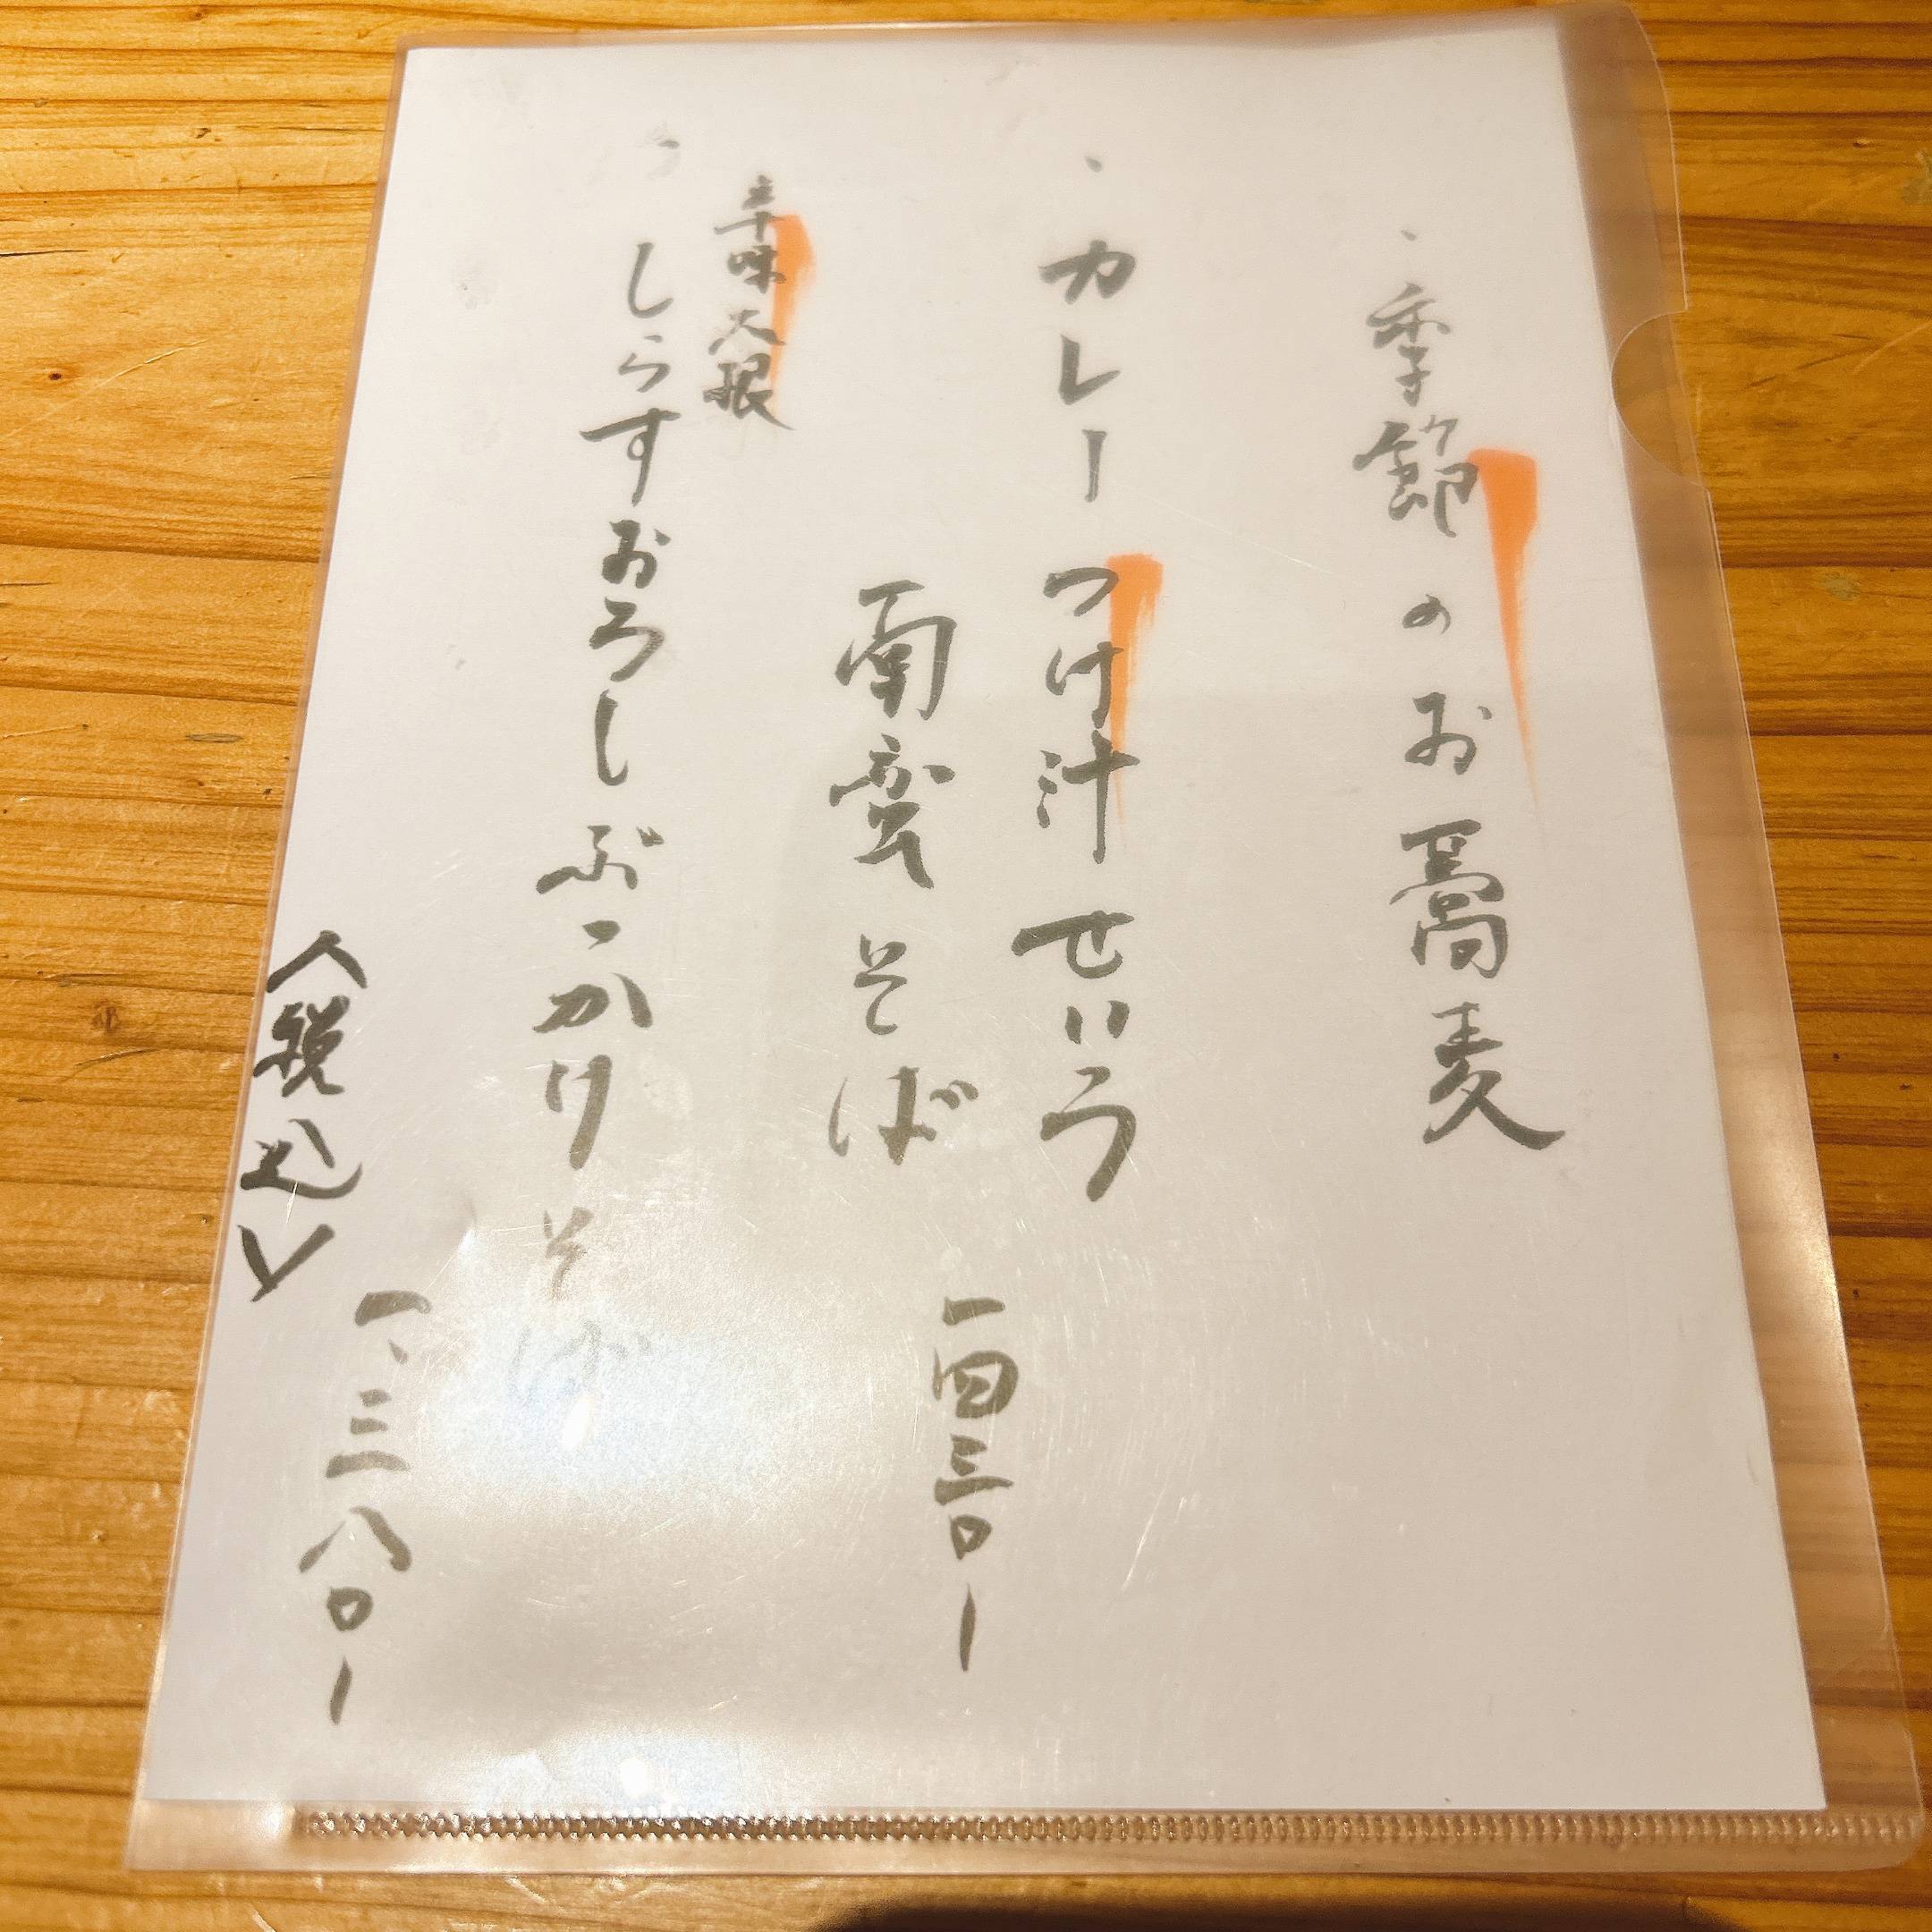 ・季節のお蕎麦
・カレーつけ汁せいろ
南蛮そば
一四三〇ー
辛味大根
・しらすおろしぶっかけそば
一、三八〇ー
〈税込〉